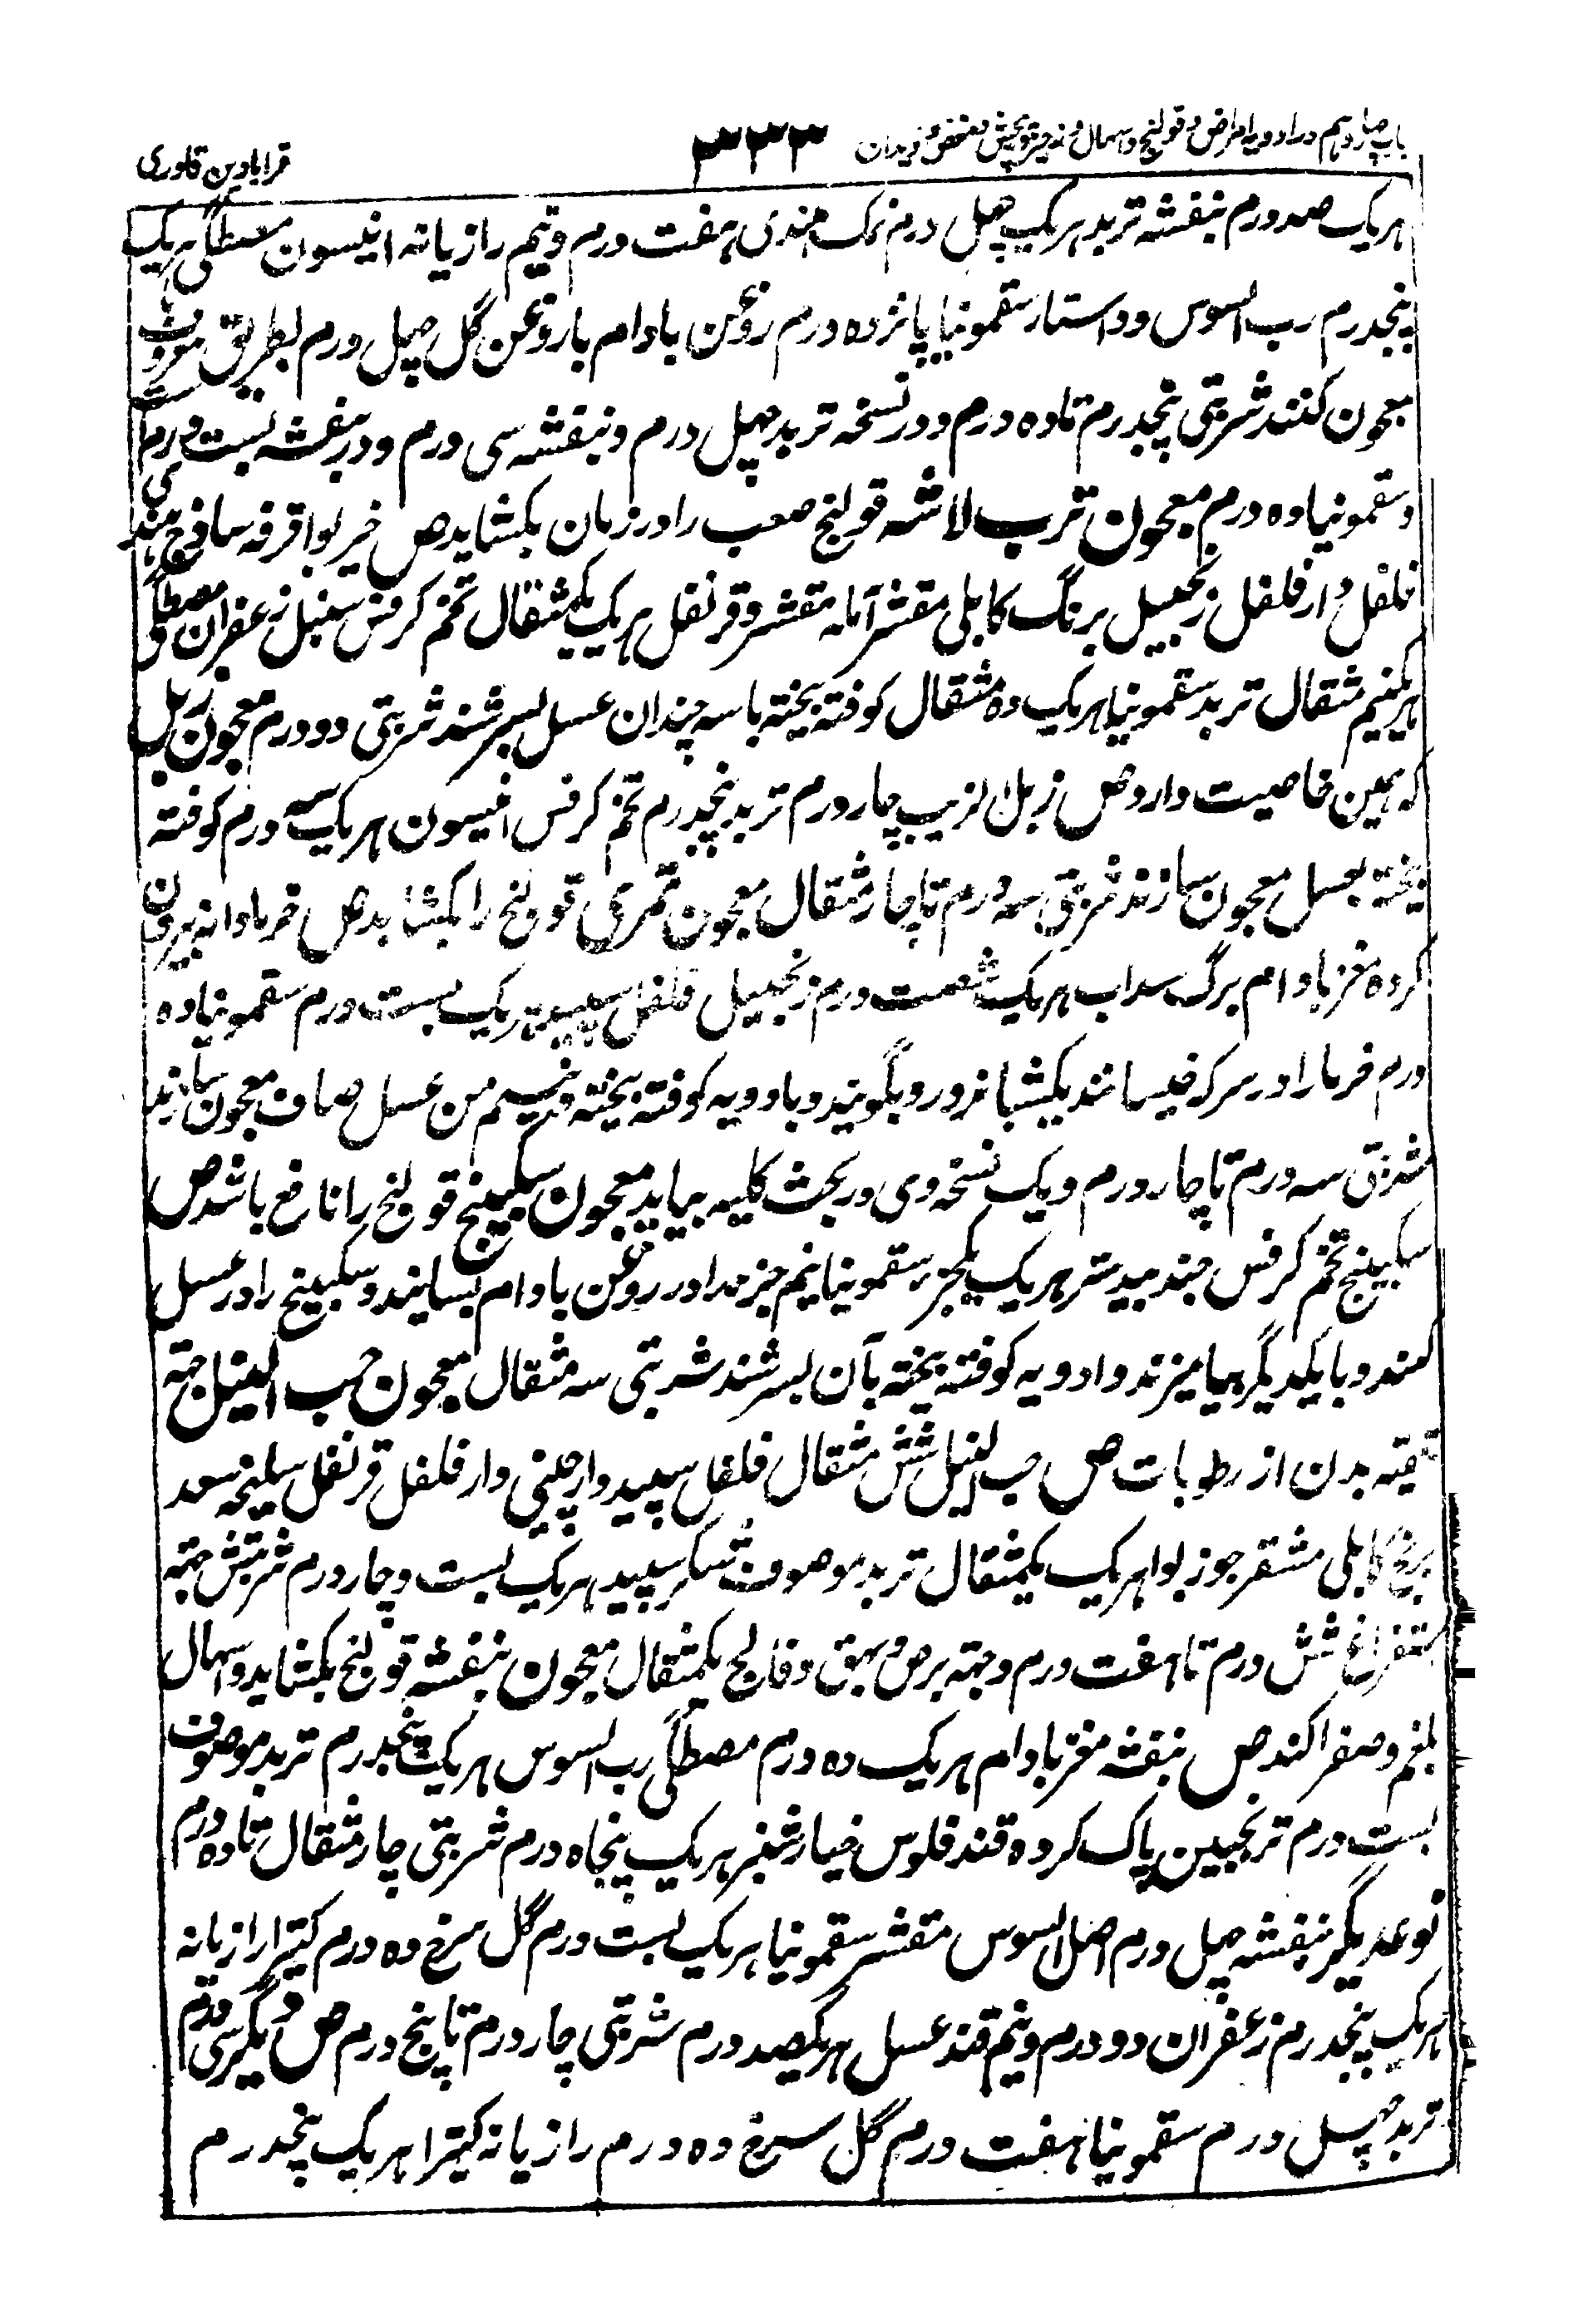 باب چهاردهم در ادویه امراض قولنج و اسهال و زحیر و پیچش و مغص و دیدان
۳۳۳
قرابادین قادری
هریک صد درم بنفشه تربد هریک چهل درم نمک هندی هفت درم ونیم رازیانه انیسون مصطگی هریک
پنجدرم رب السوس دو استار سقمونیا پانزده درم روغن بادام یا روغن گل چهل درم بطریق معروف
معجون کنند شربتی پنجدرم تا ده درم و در نسخه تربد چهل درم و بنفشه سی درم و در بنفشه بست درم
و سقمونیا ده درم معجون ترب لاشه قولنج صعب را در زمان بکشاید ص خیربوا قرفه ساذج هندی
فلفل دارفلفل زنجبیل برنگ کابلی مقشر آمله مقشر و قرنفل هریک یکمثقال تخم کرفس سنبل زعفران مصطگی
هریک نیم مثقال تربد سقمونیا هریک ده مثقال کوفته بیخته با سه چندان عسل بسرشند شربتی دو درم معجون زبل
که همین خاصیت دارد ص زبل الذیب چهار درم تربد پنجدرم تخم کرفس انیسون هریک سه درم کوفته
بیخته بعسل معجون سازند شربتی سه درم تا چار مثقال معجون تمری قولنج را بکشاید ص خرما دانه بیرون
کرده مغز بادام برگ سداب هریک شصت درم زنجبیل فلفل سپید هریک بست درم سقمونیا ده
درم خرما را در سرکه خیسانند یکشبانروز و بکوبند و با ادویه کوفته بیخته و نیم من عسل صاف معجون سازند
شربتی سه درم تا چار درم و یک نسخه وی در بحث کلیه بیاید معجون سکبینج قولنج را نافع باشد ص
سکبینج تخم کرفس جندبیدستر هریک یکجز سقمونیا نیم جز مدا در روغن بادام بسایند و سکبینج را در عسل
کنند و با یکدیگر بیامیزند و ادویه کوفته بیخته بآن بسرشند شربتی سه مثقال معجون حب النیل جهته
تنقیه بدن از رطوبات ص حب النیل شش مثقال فلفل سپید دارچینی دارفلفل قرنفل سلیخه سعد
برنج کابلی مقشر جوزبوا هریک یکمثقال تربد موصوف شکر سپید هریک بست و چار درم شربتش جهته
ستفراغ شش درم تا هفت درم و جهته برص و بهق و فالج یکمثقال معجون بنفشه قولنج بکشاید و اسهال
بلغم و صفرا کند ص بنفشه مغز بادام هریک ده درم مصطگی رب السوس هریک پنجدرم تربد موصوف
بست درم ترنجبین پاک کرده قند فلوس خیارشنبر هریک پنجاه درم شربتی چار مثقال تا ده درم
نوعدیگر بنفشه چهل درم اصل السوس مقشر سقمونیا هریک بست درم گل سرخ ده درم کتیرا رازیانه
هریک پنجدرم زعفران دو درم ونیم قند عسل هریکصد درم شربتی چار درم تا پنج درم ص دیگر سی درم
تربد چهل درم سقمونیا هفت درم گل سرخ ده درم رازیانه کتیرا هریک پنجدرم